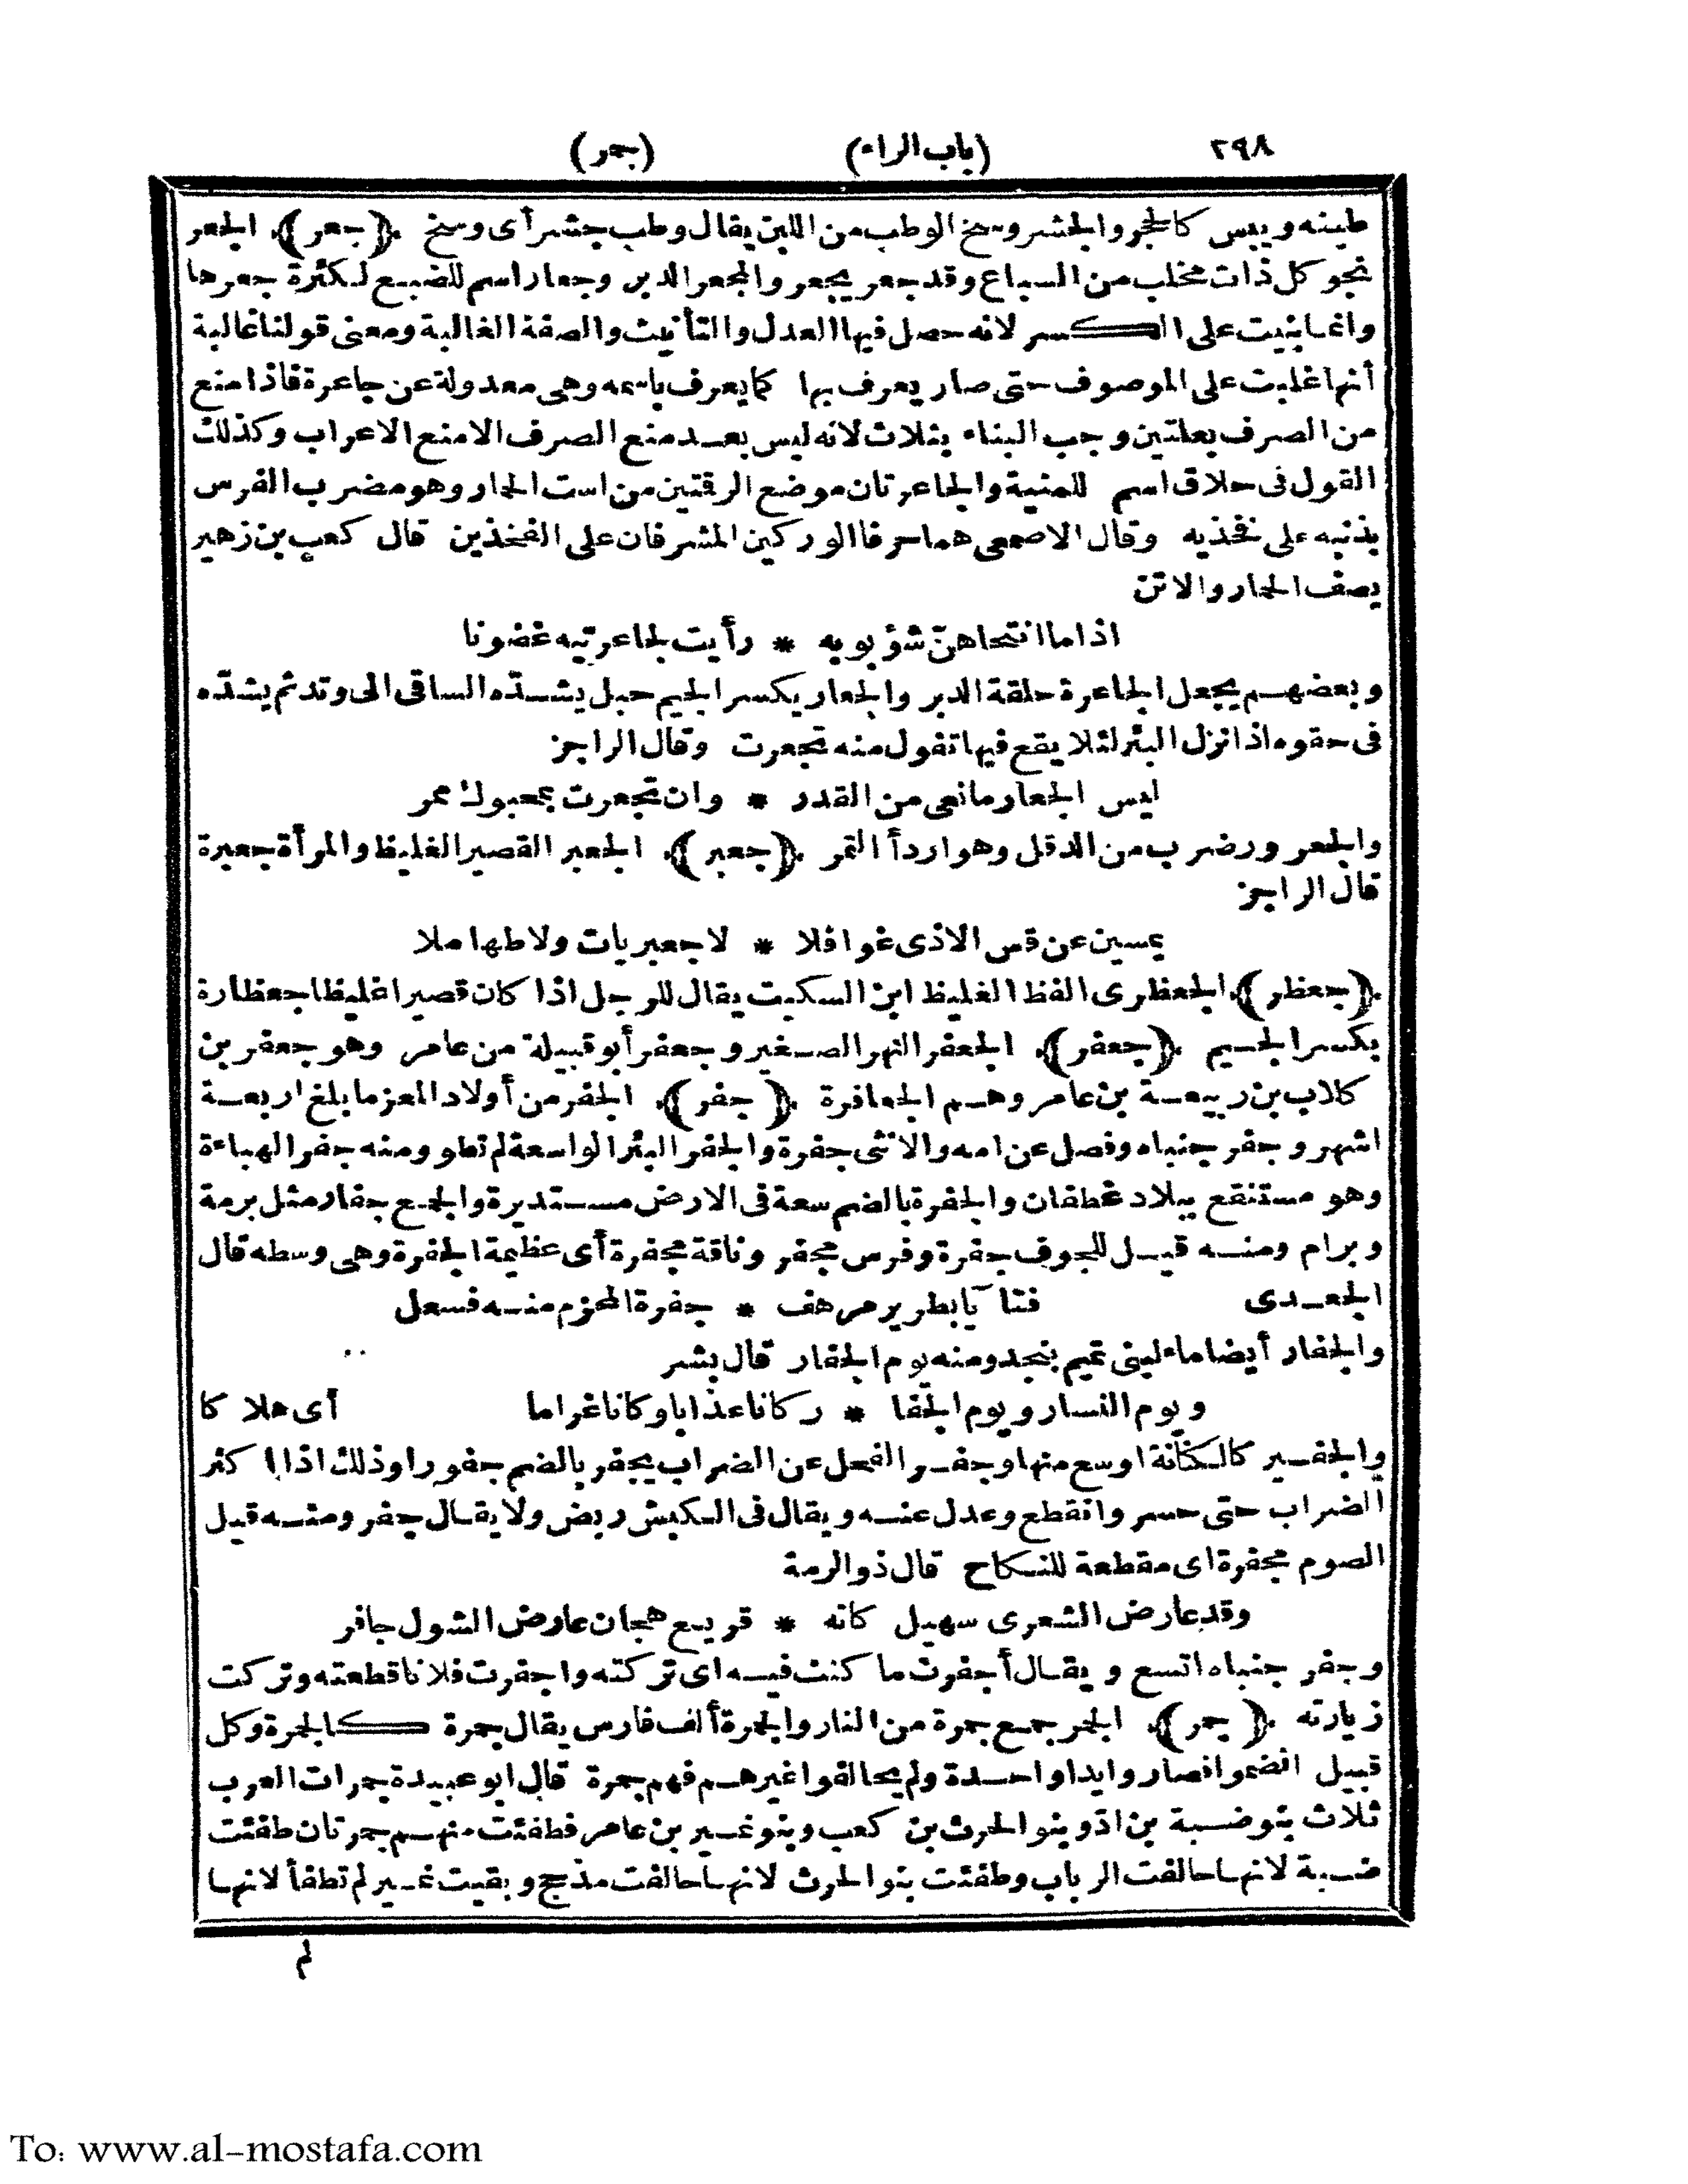 ٢٩٨ (باب الراء) (جمر)
طينه ويبس كالحجر والجشر وسخ الوطب من اللبن يقال وطب جشر أى وسخ ﴿جعر﴾ الجعر
نجو كل ذات مخلب من السباع وقد جعر يجعر والمجعر الدبر وجعار اسم للضبع لكثرة جعرها
وانما بنيت على الكسر لانه حصل فيها العدل والتأنيث والصفة الغالبة ومعنى قولنا غالبة
أنها غلبت على الموصوف حتى صار يعرف بها كما يعرف باسمه وهى معدولة عن جاعرة فاذا منع
من الصرف بعلتين وجب البناء بثلاث لانه ليس بعد منع الصرف الا منع الاعراب وكذلك
القول فى حلاق اسم للمنية والجاعرتان موضع الرقتين من است الحمار وهو مضرب الفرس
بذنبه على فخذيه وقال الاصمعى هما حرفا الوركين المشرفان على الفخذين قال كعب بن زهير
يصف الحمار والاتن
اذا ما انتحاهنّ شؤبوبه * رأيت لجاعرتيه غضونا
وبعضهم يجعل الجاعرة حلقة الدبر والجعار بكسر الجيم حبل يشدّه الساقى الى وتد ثم يشدّه
فى حقوه اذا نزل البئر لئلا يقع فيها تقول منه تجعرت وقال الراجز
ليس الجعار مانعى من القدر * وان تجعرت بمحبوك ممر
والجعرور ضرب من الدقل وهو اردأ التمر ﴿جعبر﴾ الجعبر القصير الغليظ والمرأة جعبرة
قال الراجز
يمسين عن قس الاذى غوافلا * لا جعبريات ولا طهاملا
﴿جعظر﴾ الجعظرى الفظ الغليظ ابن السكيت يقال للرجل اذا كان قصيرا غليظا جعظارة
بكسر الجيم ﴿جعفر﴾ الجعفر النهر الصغير وجعفر أبو قبيلة من عامر وهو جعفر بن
كلاب بن ربيعة بن عامر وهم الجعافرة ﴿جفر﴾ الجفر من أولاد المعز ما بلغ اربعة
اشهر وجفر جنباه وفصل عن امه والانثى جفرة والجفر البئر الواسعة لم تطو ومنه جفر الهباءة
وهو مستنقع ببلاد غطفان والجفرة بالضم سعة فى الارض مستديرة والجمع جفار مثل برمة
وبرام ومنه قيل للجوف جفرة وفرس مجفر وناقة مجفرة أى عظيمة الجفرة وهى وسطه قال
الجعدى فتآيا بطرير مرهف * جفرة المحزم منه فسعل
والجفار أيضا ماء لبنى تميم بنجد ومنه يوم الجفار قال بشر
ويوم النسار ويوم الجفا * ر كانا عذابا وكانا غراما أى هلاكا
والجفير كالكنانة اوسع منها وجفر الفحل عن الضراب يجفر بالضم جفورا وذلك اذا اكثر
الضراب حتى حسر وانقطع وعدل عنه ويقال فى الكبش ربض ولا يقال جفر ومنه قيل
الصوم مجفرة اى مقطعة للنكاح قال ذو الرمة
وقد عارض الشعرى سهيل كانه * قريع هجان عارض الشول جافر
وجفر جنباه اتسع ويقال أجفرت ما كنت فيه اى تركته واجفرت فلانا قطعته وتركت
زيارته ﴿جمر﴾ الجمر جمع جمرة من النار والجمرة ألف فارس يقال جمرة كالجمرة وكل
قبيل انضموا فصاروا يدا واحدة ولم يحالفوا غيرهم فهم جمرة قال ابو عبيدة جمرات العرب
ثلاث بنو ضبة بن ادّ وبنو الحرث بن كعب وبنو نمير بن عامر فطفئت منهم جمرتان طفئت
ضبة لانها حالفت الرباب وطفئت بنو الحرث لانها حالفت مذحج وبقيت نمير لم تطفأ لانها
لم
To: www.al-mostafa.com